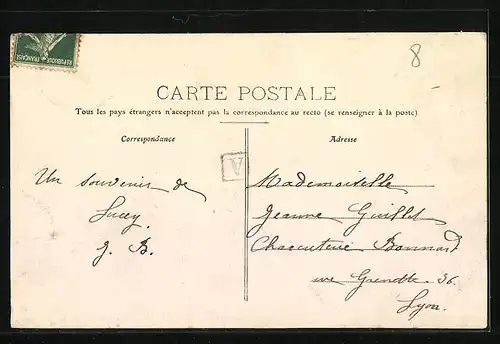 RÉPUBLIQUE FRANÇAISE
8
CARTE POSTALE
Tous les pays étrangers n'acceptent pas la correspondance au recto (se renseigner à la poste)
Correspondance
Adresse
A
Un souvenir de
Lucey
J. B.
Mademoiselle
Jeanne Guillet
Charcuterie Bonnard
rue Grenette 36.
Lyon.